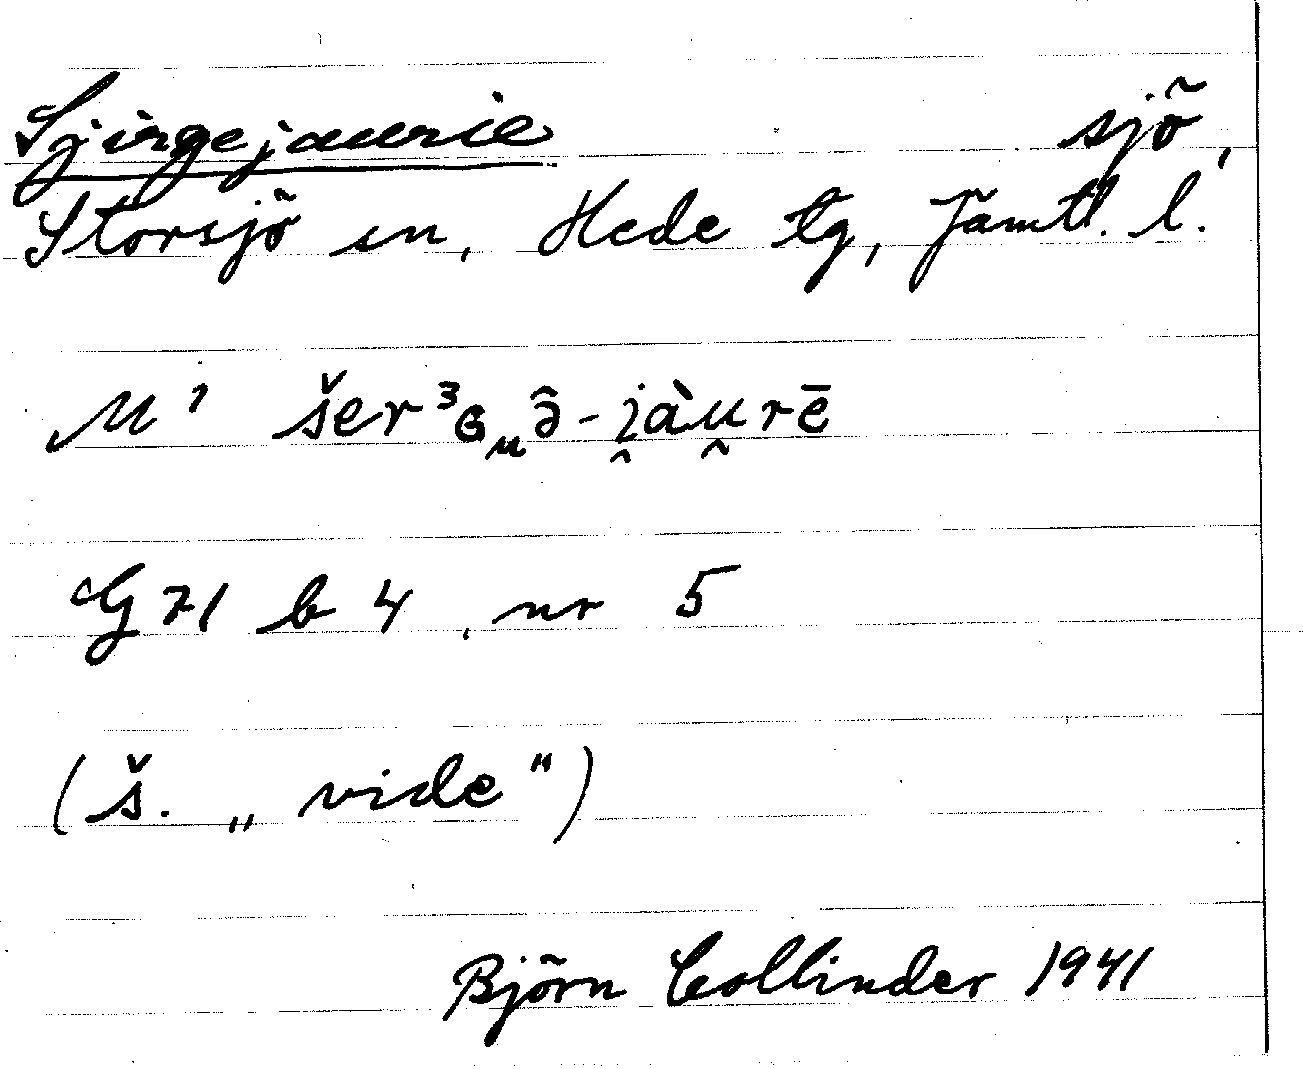 Sjirgejaurie sjö,
Storsjö sn, Hede tg, Jämtl. l.
M¹ šer³ɢᵤə̑-i̯àu̯rē
G 71 b 4, nr 5
(š. „vide")
Björn Collinder 1941